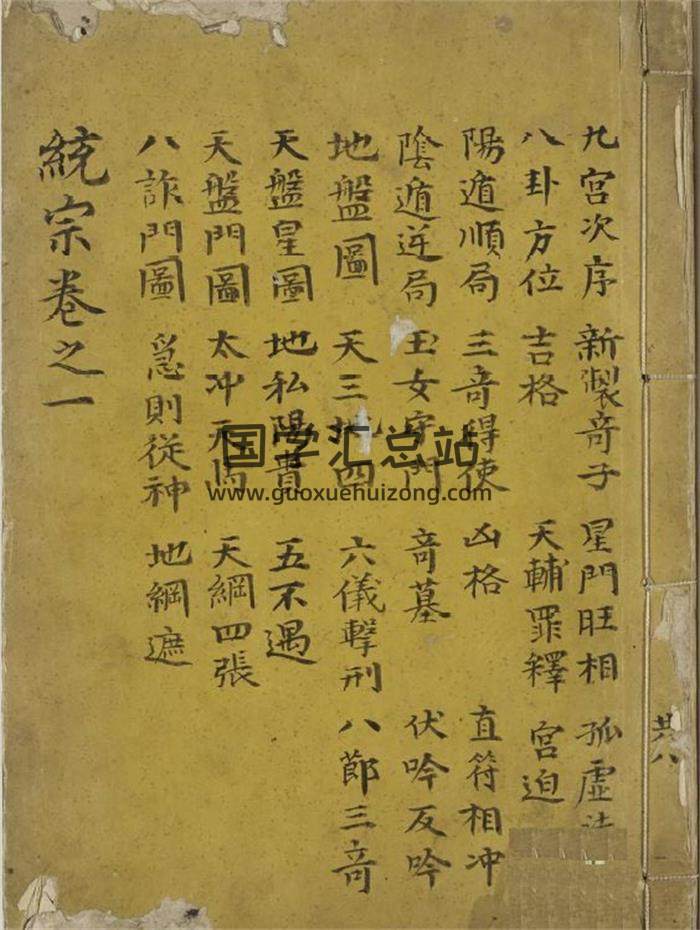 共八
九宮次序 新製竒子 星門旺相 孤虛法
八卦方位 吉格 天輔罪釋 宮迫
陽遁順局 三竒得使 凶格 直符相冲
陰遁逆局 玉女守門 竒墓 伏吟反吟
地盤圖 天三地四 六儀擊刑 八節三竒
天盤星圖 地私陽貴 五不遇
天盤門圖 太冲天馬 天綱四張
八詐門圖 急則從神 地綱遮
統宗卷之一
国学汇总站
www.guoxuehuizong.com